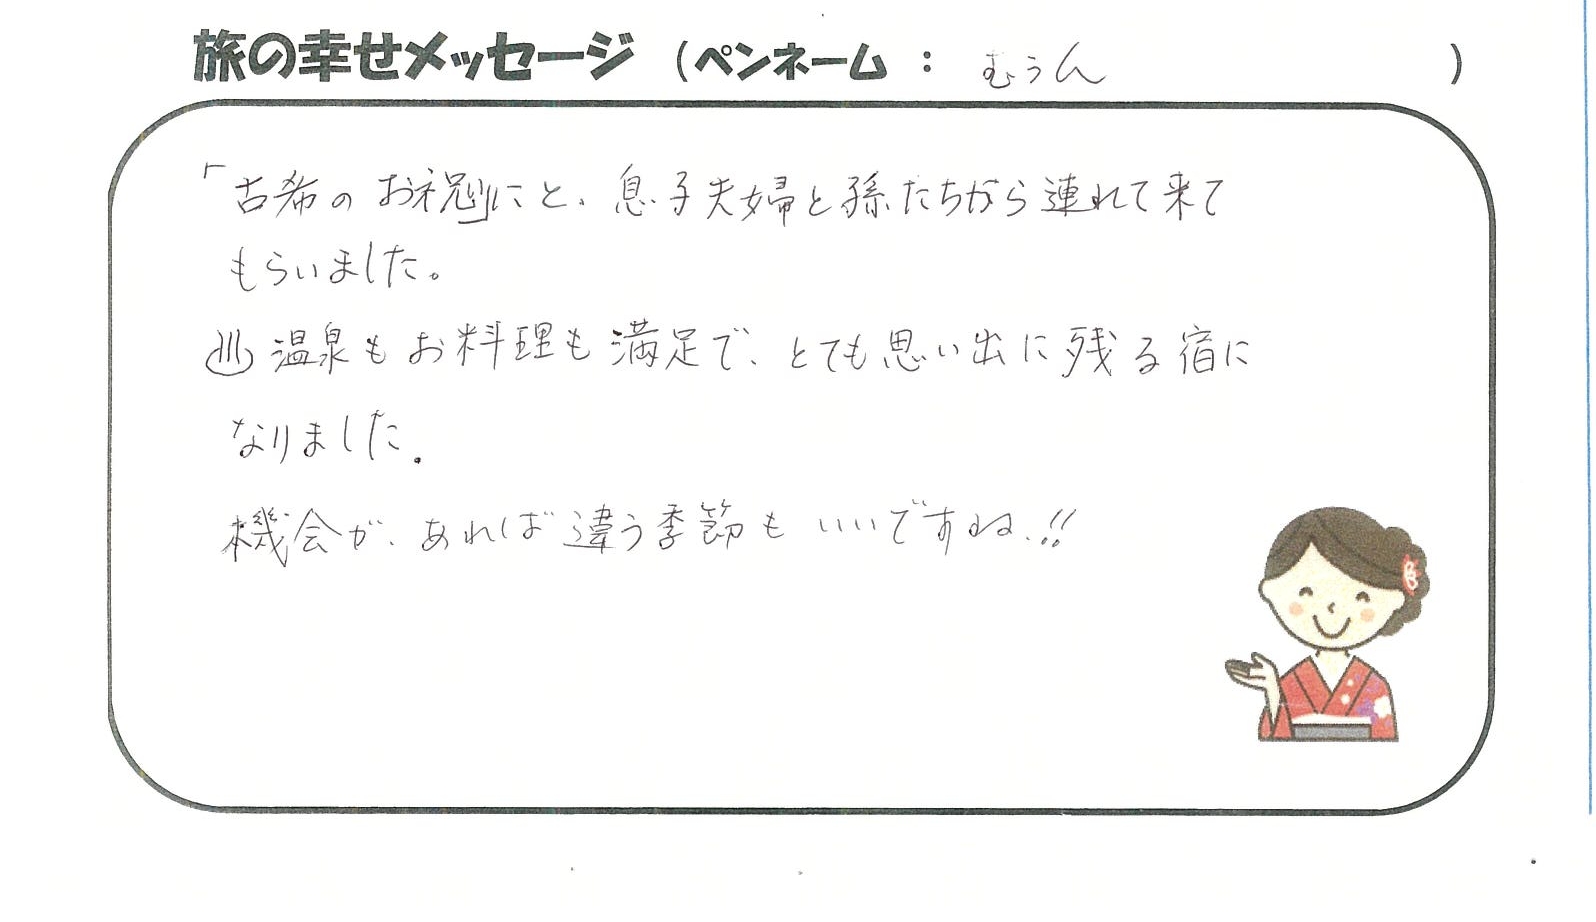 旅の幸せメッセージ (ペンネーム : むぅん )
「古希のお祝い」にと、息子夫婦と孫たちから連れて来て
もらいました。
♨温泉もお料理も満足で、とても思い出に残る宿に
なりました.
機会が、あれば違う季節もいいですね.!!